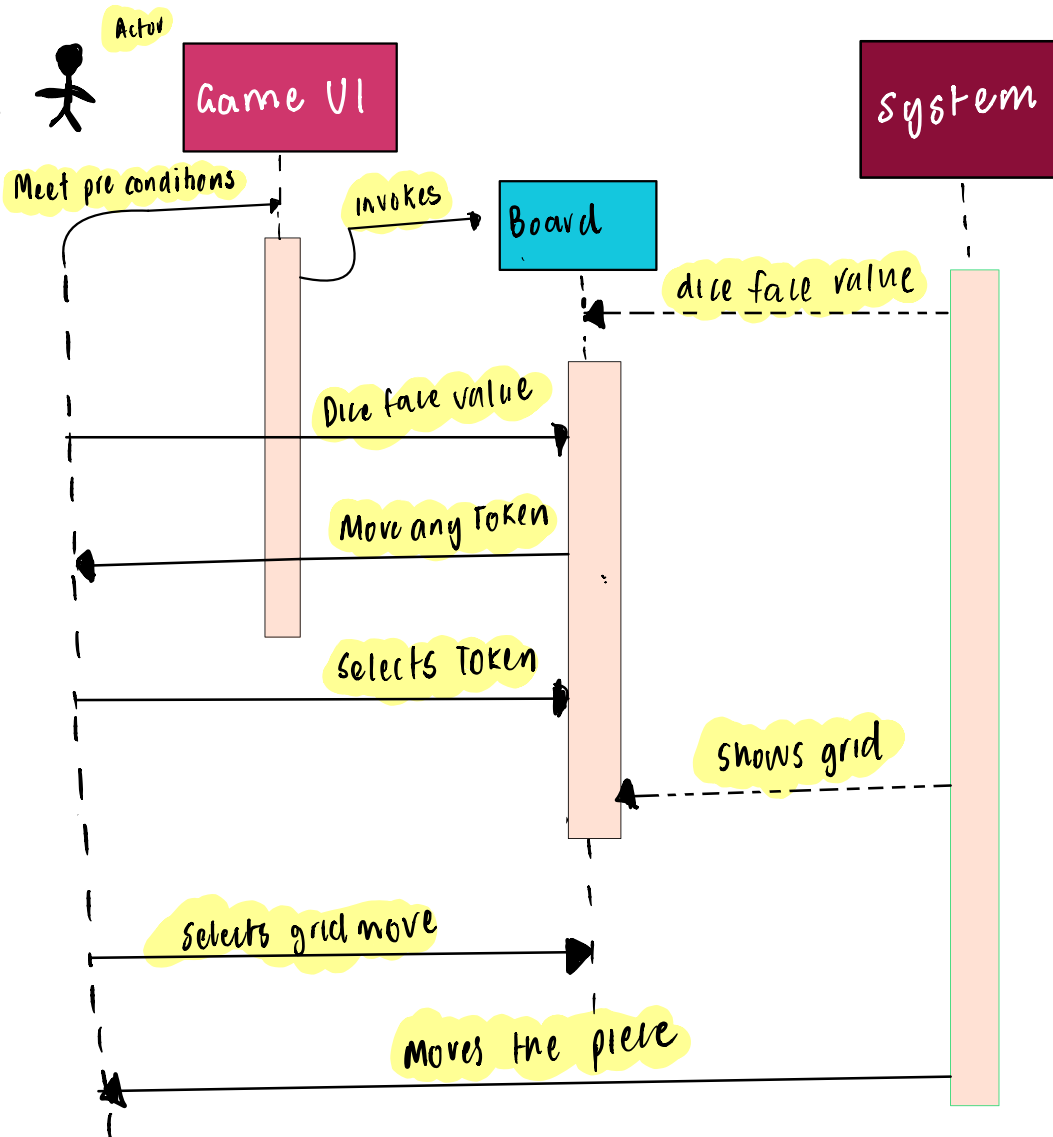 Actor
Game UI
System
Meet pre conditions
invokes
Board
dice face value
Dice face value
Move any Token
Selects Token
shows grid
Selects grid move
Moves the piece